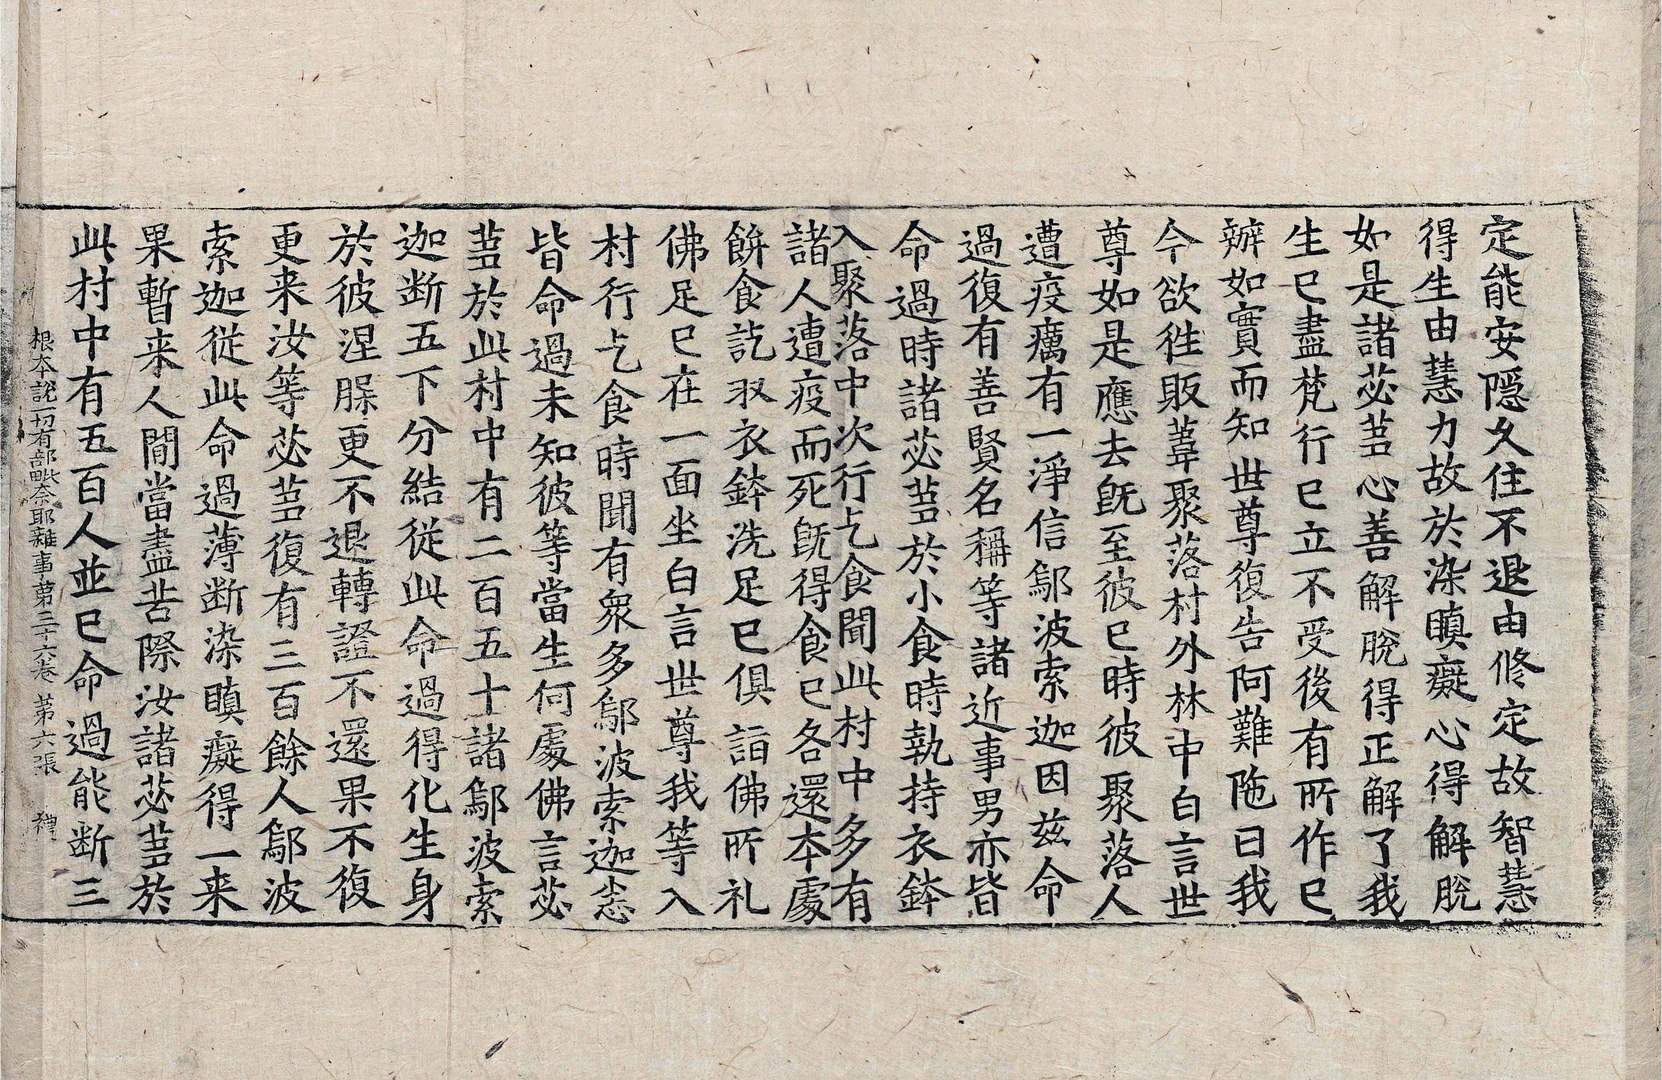 定能安隱久住不退由修定故智慧
得生由慧力故於染瞋癡心得解脫
如是諸苾芻心善解脫得正解了我
生已盡梵行已立不受後有所作已
辦如實而知世尊復告阿難陁曰我
今欲徃販葦聚落村外林中白言世
尊如是應去旣至彼已時彼聚落人
遭疫癘有一淨信鄔波索迦因茲命
過復有善賢名稱等諸近事男亦皆
命過時諸苾芻於小食時執持衣鉢
入聚落中次行乞食聞此村中多有
諸人遭疫而死旣得食已各還本處
餅食訖収衣鉢洗足已俱詣佛所礼
佛足已在一面坐白言世尊我等入
村行乞食時聞有衆多鄔波索迦悉
皆命過未知彼等當生何處佛言苾
芻於此村中有二百五十諸鄔波索
迦断五下分結從此命過得化生身
於彼涅槃更不退轉證不還果不復
更来汝等苾芻復有三百餘人鄔波
索迦從此命過薄断染瞋癡得一来
果暫来人間當盡苦際汝諸苾芻於
此村中有五百人並已命過能断三
根本說一切有部毗奈耶雜事第三十六卷 第六張